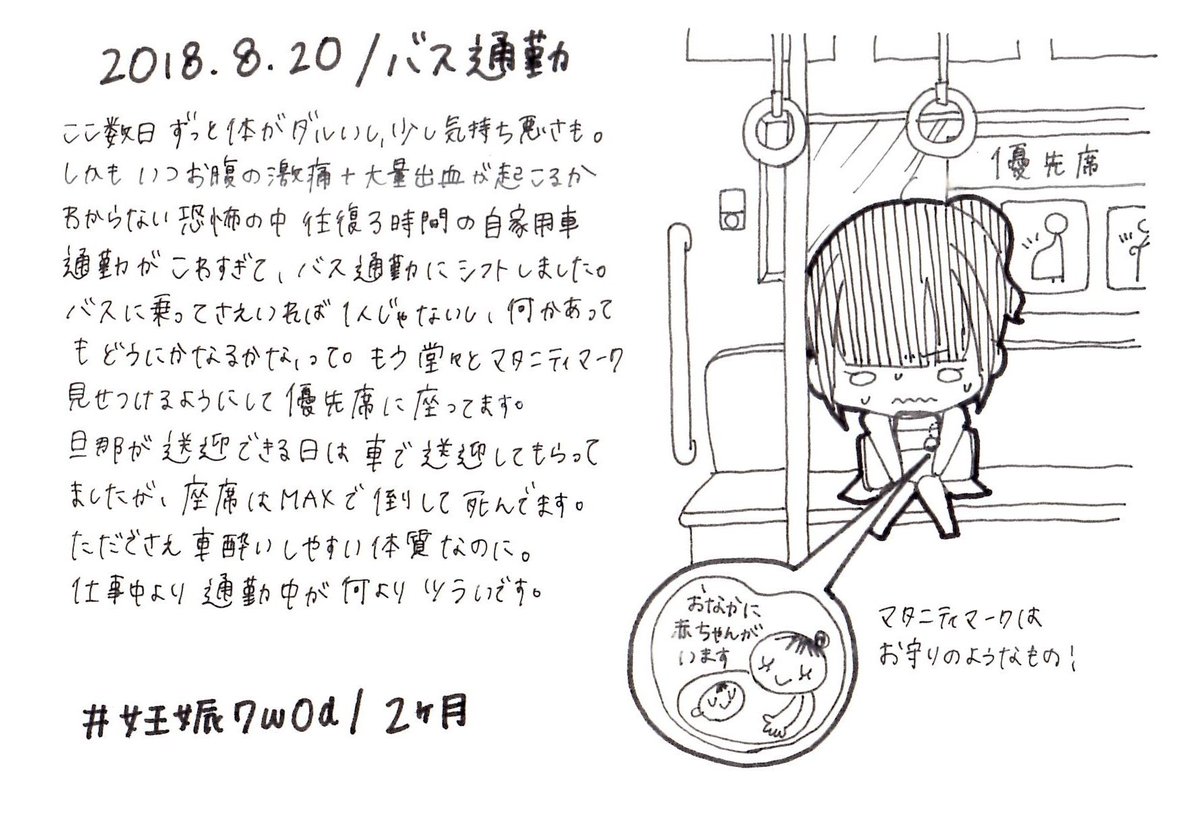 2018.8.20/バス通勤
ここ数日 ずっと体がダルいし、少し気持ち悪さも。
しかも いつお腹の激痛+大量出血が起こるか
わからない恐怖の中 往復3時間の自家用車
通勤が こわすぎて、バス通勤にシフトしました。
バスに乗ってさえいれば1人じゃないし、何かあって
も どうにかなるかな、って。もう堂々とマタニティマーク
見せつけるようにして優先席に座ってます。
旦那が送迎できる日は車で送迎してもらって
ましたが、座席はMAXで倒して死んでます。
ただでさえ車酔いしやすい体質なのに。
仕事中より通勤中が何よりツラいです。
#妊娠7w0d/2ヶ月
優先席
おなかに
赤ちゃんが
います
マタニティマークは
お守りのようなもの!